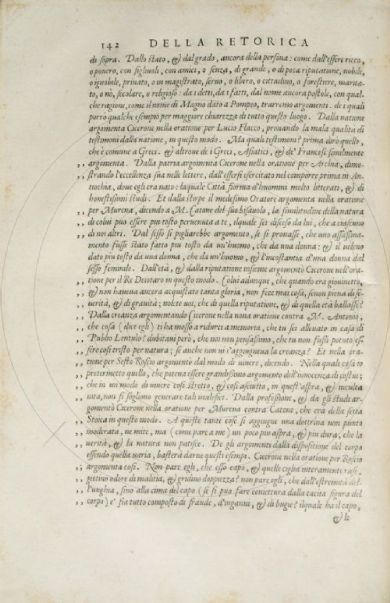 142 DELLA RETORICA
di sopra. Dallo stato, & dal grado, ancora della persona: come dall'essere ricco,
o povero, con figliuoli, con amici, o senza, di grande, o di poca riputatione, nobile,
o ignobile, privato, o in magistrato, servo, o libero, o cittadino, o forestiere, marita-
to, o nò, secolare, o religioso: da i detti, da i fatti, dal nome ancora postole, con qual-
che ragione, come il nome di Magno dato a Pompeo, trarremo argomenti. de i quali
porrò qualche esempio per maggiore chiarezza di tutto questo luogo. Dalla natione
argomenta Cicerone nella oratione per Lucio Flacco, provando la mala qualità di
testimoni dalla natione, in questo modo. Ma quali testimoni? prima dirò quello,
che è comune a Greci. & altrove de i Greci, Asiatici, & de' Francesi similmente
argomenta. Dalla patria argomenta Cicerone nella oratione per Archia, dimo-
strando l'eccellenza sua nelle lettere, dall'essersi esercitato nel comporre prima in An-
tiochia, dove egli era nato: la quale Città fioriva d'huomini molto letterati, & di
honestissimi studi. Et dalla stirpe il medesimo Oratore argomenta nella oratione
per Murena, dicendo a M. Catone del suo bisavolo, la similitudine della natura
di colui può essere più tosto pervenuta a te, il quale sei disceso da lui, che a ciascuno
di noi altri. Dal sesso si pigliarebbe argomento, se si provasse, che uno assassina-
mento fusse stato fatto più tosto da un'huomo, che da una donna: & il veleno
dato più tosto da una donna, che da un'huomo, & l'incostantia d'una donna dal
sesso feminile. Dall'età, & dalla riputatione insieme argomentò Cicerone nell'ora-
tione per il Re Deotaro in questo modo. Colui adunque, che quando era giovinetto,
& non haveva ancora acquistato tanta gloria, non fece mai cosa, se non piena di se-
verità, & di gravità: volete voi, che di quella riputatione, & di quella età ballasse?
Dalla creanza argomentando Cicerone nella nova oratione contra M. Antonio,
che cosa (dice egli) ti ha mosso a ridurci a memoria, che tu sei allevato in casa di
Publio Lentulo? dubitavi però, che noi non pensassimo, che tu non fussi potuto es-
sere così tristo per natura; se anche non vi s'aggiungeva la creanza? Et nella ora-
tione per Sesto Roscio argomentò dal modo di vivere, dicendo. Nella qual cosa io
pretermetto quello, che poteva essere grandissimo argomento dell'innocenza di costui;
che in un modo di vivere così stretto, & così asciutto, in quest'aspra, & inculta
vita, non si sogliono generare tali maleficî. Dalla professione, & da gli studi ar-
gomentò Cicerone nella oratione per Murena contra Catone, che era della setta
Stoica in questo modo. A queste tante cose si aggiugne una dottrina non punto
moderata, ne mite; ma (come pare a me) un poco più aspra, & più dura, che la
verità, & la natura non patisce. De gli argomenti dalla dispositione del corpo
essendo quella varia, basterà darne questi esempi. Cicerone nella oratione per Roscio
argomenta così. Non pare egli, che esso capo, & quelle ciglia interamente rase,
gettino odore di malitia, & gridino doppiezza? non pare egli, che dall'estremità del-
l'unghia, sino alla cima del capo (se si può fare conettura dalla tacita figura del
corpo) e' sia tutto composto di fraude, d'inganni, & di bugie? il quale ha il capo,
& le